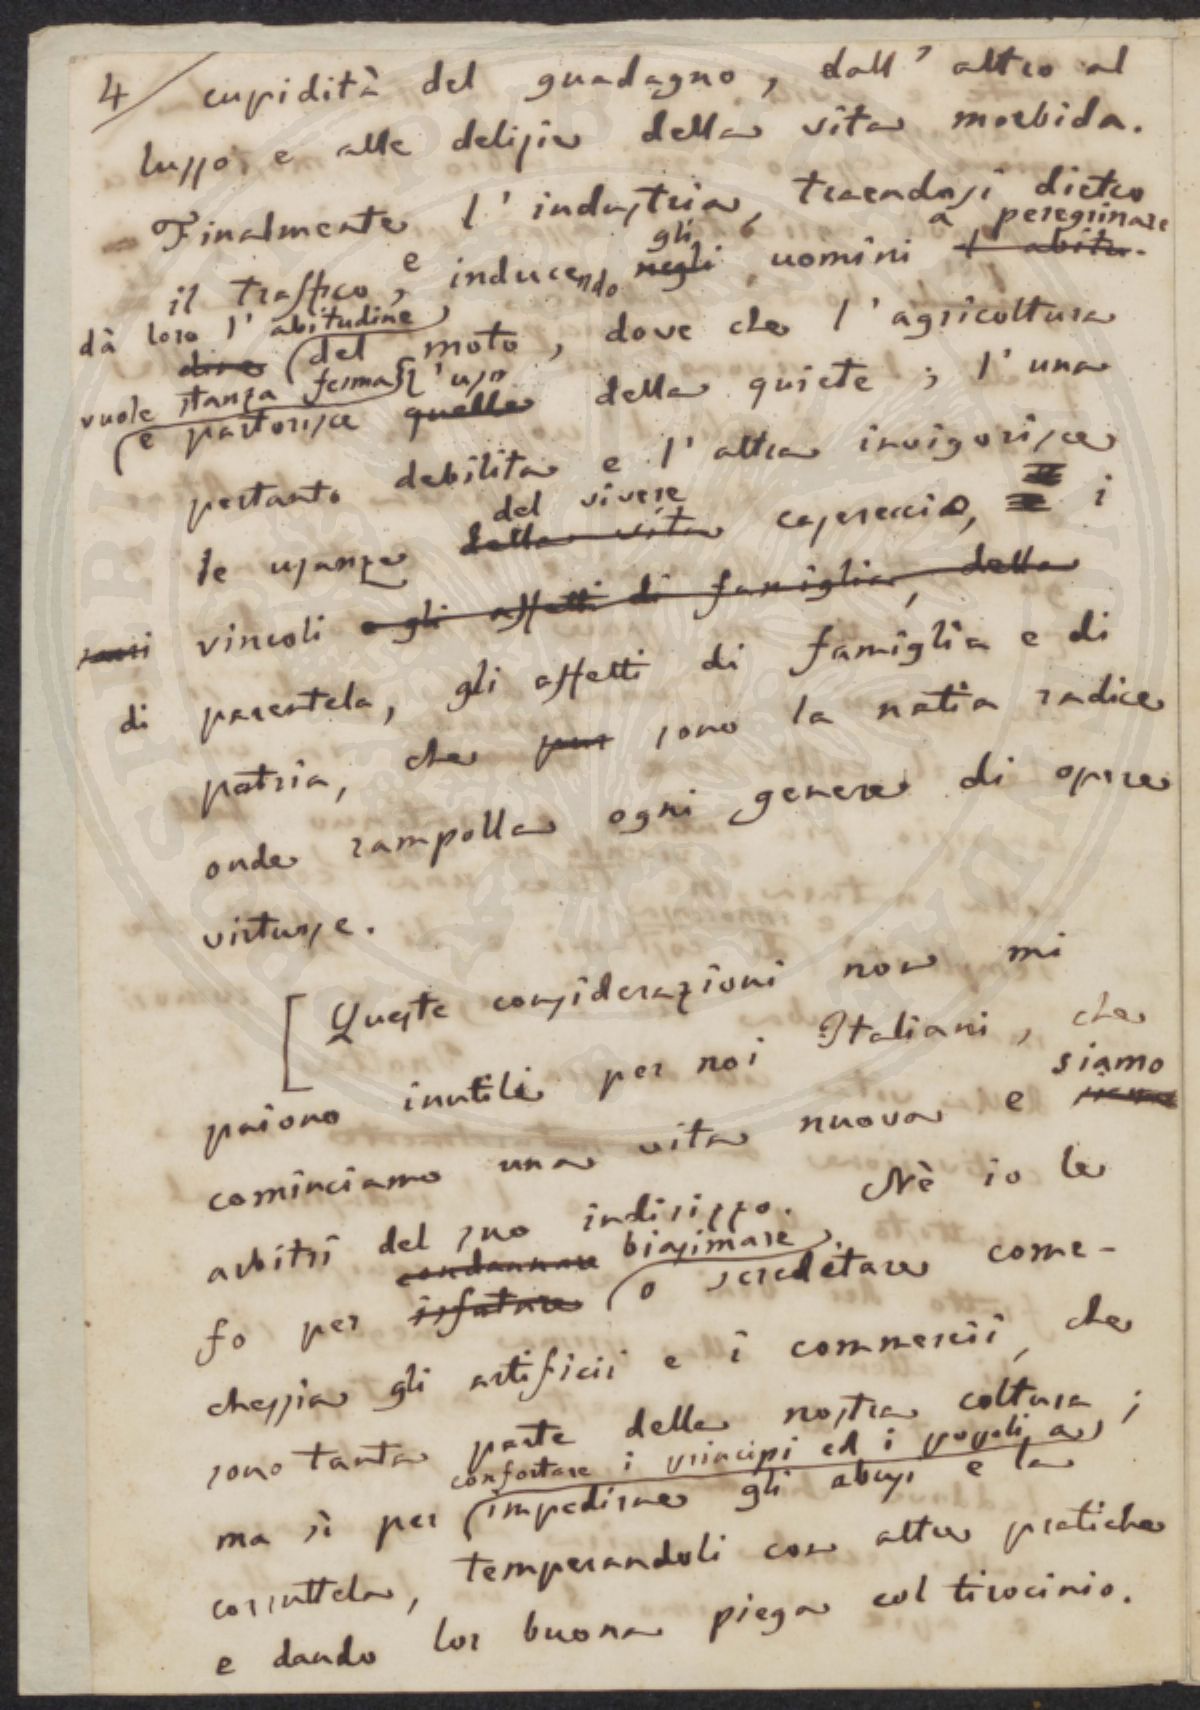 4/ cupidità del guadagno, dall'altro al
lusso, e alle delizie della vita morbida.
Finalmente l'industria, traendosi dietro
gli a peregrinare
il traffico, e inducendo negli uomini l'abitu-
dà loro l'abitudine
dine del moto, dove che l'agricoltura
vuole stanza ferma l'uso
e partorisce quella della quiete; l'una
pertanto debilita e l'altra invigorisce
del vivere
le usanze della vita casereccio, i
vincoli e gli affetti di famiglia, della
di parentela, gli affetti di famiglia e di
patria, che pur sono la natia radice
onde rampolla ogni genere di opere
virtuose.
[Queste considerazioni non mi
paiono inutili per noi Italiani, che
siamo
cominciamo una vita nuova e siamo
arbitri del suo indirizzo. Nè io le
condannare biasimare
fo per isfatare o screditare come-
chessia gli artificii e i commercii, che
sono tanta parte della nostra coltura;
confortare i principi ed i popoli a
ma sì per impedirne gli abusi e la
corruttela, temperandoli con altre pratiche
e dando lor buona piega col tirocinio.